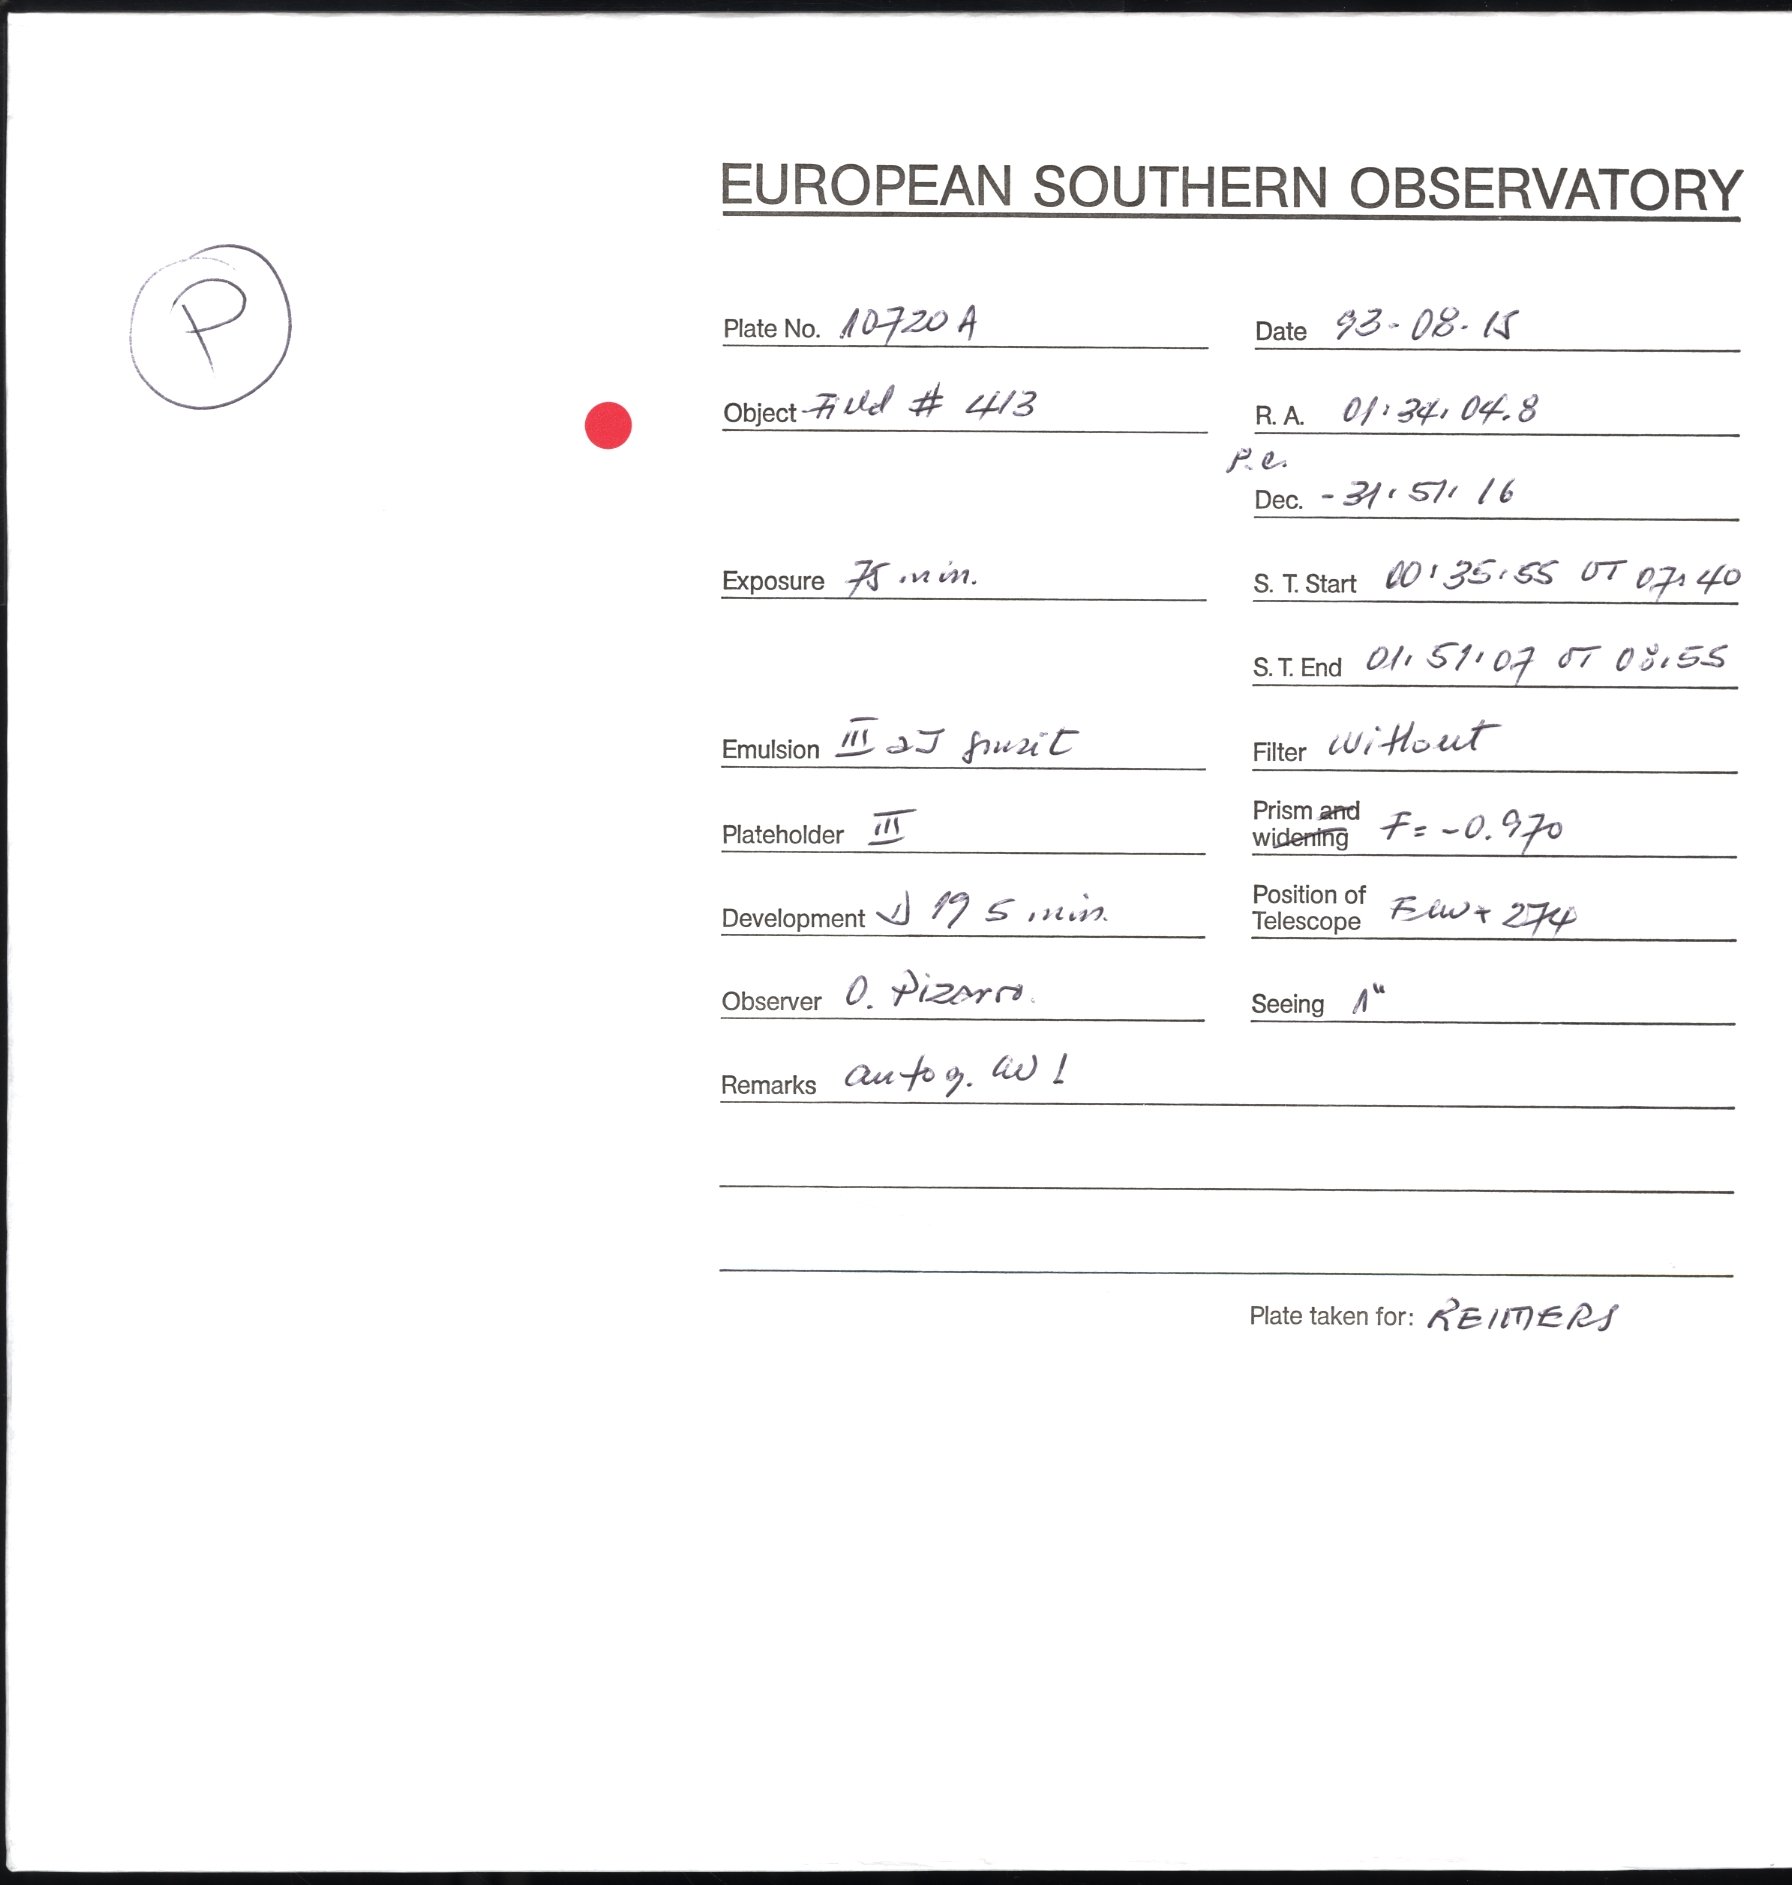 EUROPEAN SOUTHERN OBSERVATORY
P
Plate No. 10720 A
Date 93-08-15
Object Field # 413
R. A. 01:34:04.8
P.e.
Dec. -31:51:16
Exposure 75 min.
S. T. Start 00:35:55 UT 07:40
S. T. End 01:51:07 UT 08:55
Emulsion III aJ
Filter without
Plateholder III
Prism and widening F= -0.970
Development 19 5 min.
Position of Telescope + 274
Observer O. Pizarro.
Seeing 1"
Remarks autog.
Plate taken for: REIMERS